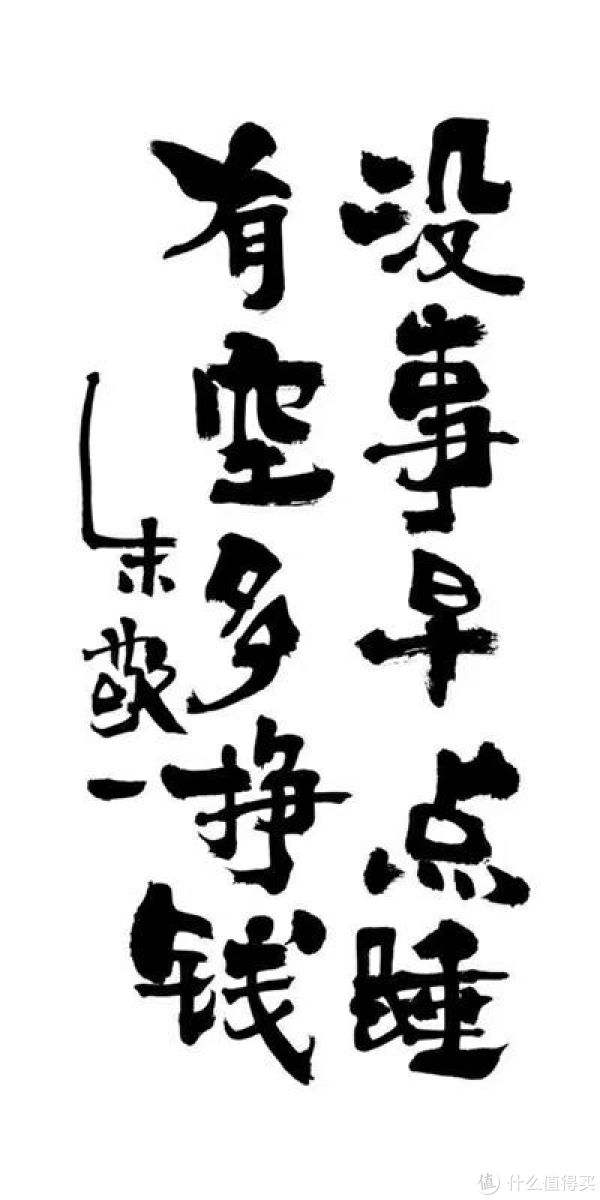 没事早点睡
有空多挣钱
朱敬一
值 什么值得买